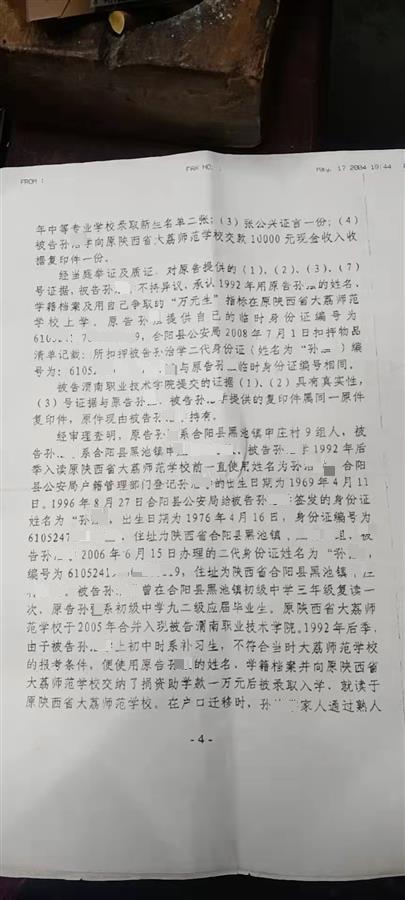 FROM :
FAX NO. :
May. 17 2004 19:44
年中等专业学校录取新生名单二张；(3) 张公兴证言一份；(4)
被告孙 学向原陕西省大荔师范学校交款 10000 元现金收入收
据复印件一份。
经当庭举证及质证，对原告提供的 (1)、(2)、(3)、(7)
号证据，被告孙 不持异议，承认 1992 年用原告孙 的姓名、
学籍档案及用自己争取的“万元生”指标在原陕西省大荔师范
学校上学。原告孙 提供自己的临时身份证编号为
6105 9，合阳县公安局 2008 年 7 月 1 日扣押物品
清单记载：所扣押被告孙治学二代身份证（姓名为“孙 ）编
号为：6105 与原告孙 临时身份证编号相同。
被告渭南职业技术学院提交的证据 (1)、(2) 具有真实性，
(3) 号证据与原告孙 、被告孙 提供的复印件属同一原件
复印件，原件现由被告 持有。
经审理查明，原告孙 系合阳县黑池镇中庄村 9 组人，被
告孙 系合阳县黑池镇 被告孙 学 1992 年后
季入读原陕西省大荔师范学校前一直使用姓名为孙治 合阳
县公安局户籍管理部门登记孙 的出生日期为 1969 年 4 月 11
日。1996 年 8 月 27 日合阳县公安局给被告孙 签发的身份证
姓名为“孙 ，出生日期为 1976 年 4 月 16 日，身份证编号为
6105247 ，住址为陕西省合阳县黑池镇 组，被
告孙 2006 年 6 月 15 日办理的二代身份证姓名为“孙 ，
编号为 6105241 9，住址为陕西省合阳县黑池镇
被告孙 曾在合阳县黑池镇初级中学三年级复读一
次，原告孙 系初级中学九二级应届毕业生。原陕西省大荔师
范学校于 2005 年合并入现被告渭南职业技术学院。1992 年后季，
由于被告孙 上初中时系补习生，不符合当时大荔师范学校
的报考条件，便使用原告孙 的姓名，学籍档案并向原陕西省
大荔师范学校交纳了捐资助学款一万元后被录取入学，就读于
原陕西省大荔师范学校。在户口迁移时，孙 家人通过熟人
- 4 -